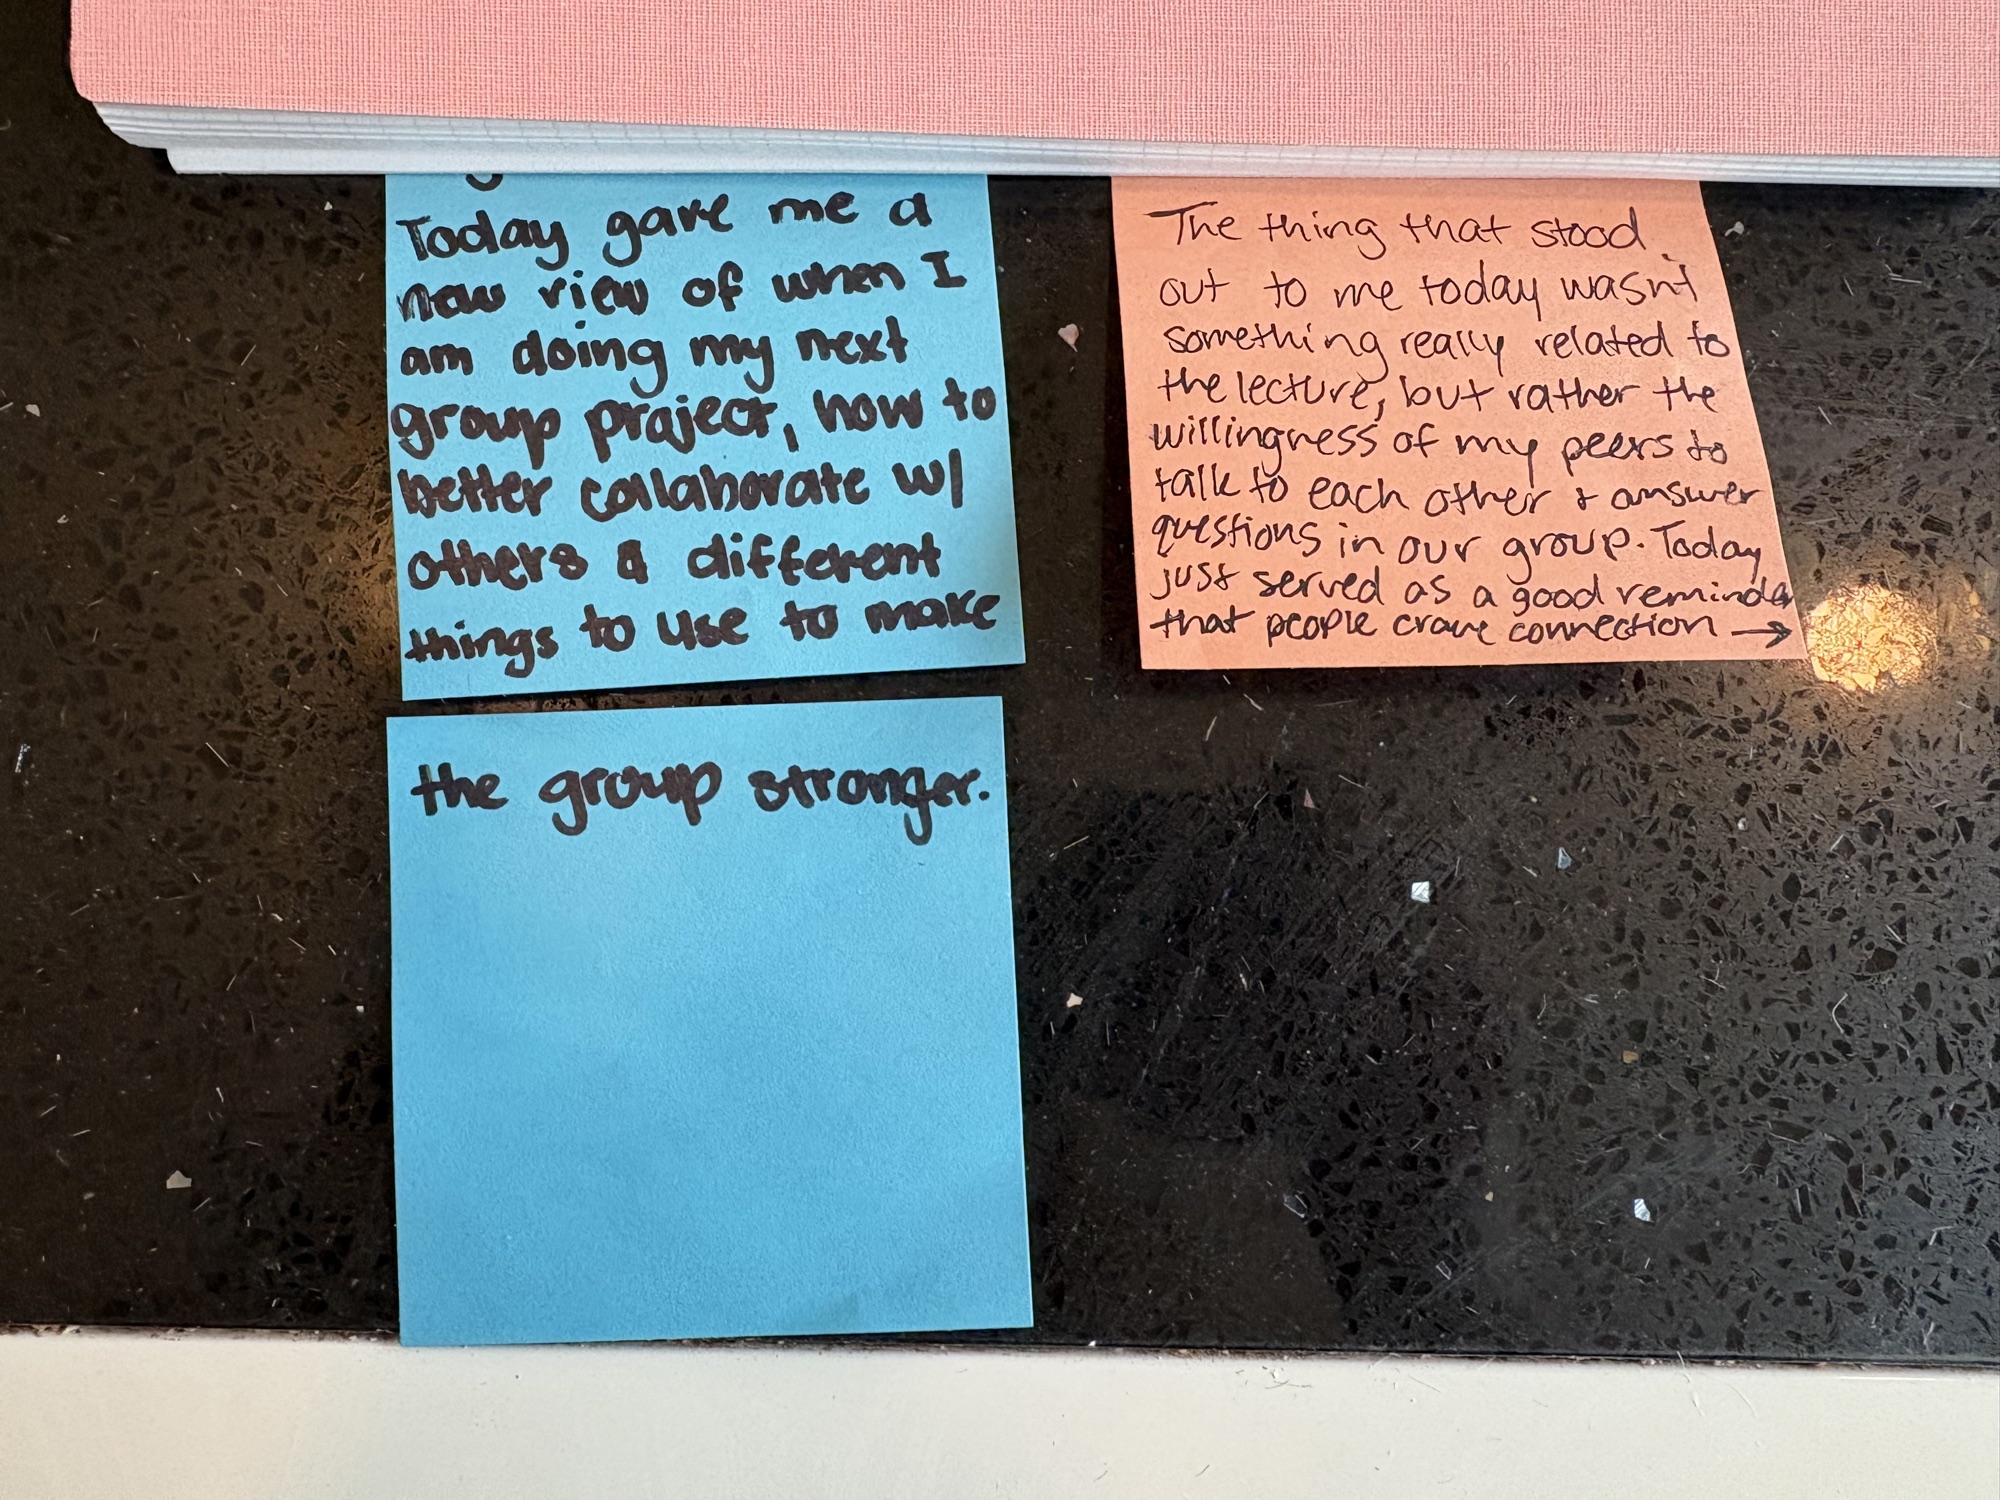 Today gave me a
new view of when I
am doing my next
group project, how to
better collaborate w/
others & different
things to use to make
the group stronger.
The thing that stood
out to me today wasn't
something really related to
the lecture, but rather the
willingness of my peers to
talk to each other & answer
questions in our group. Today
just served as a good reminder
that people crave connection →